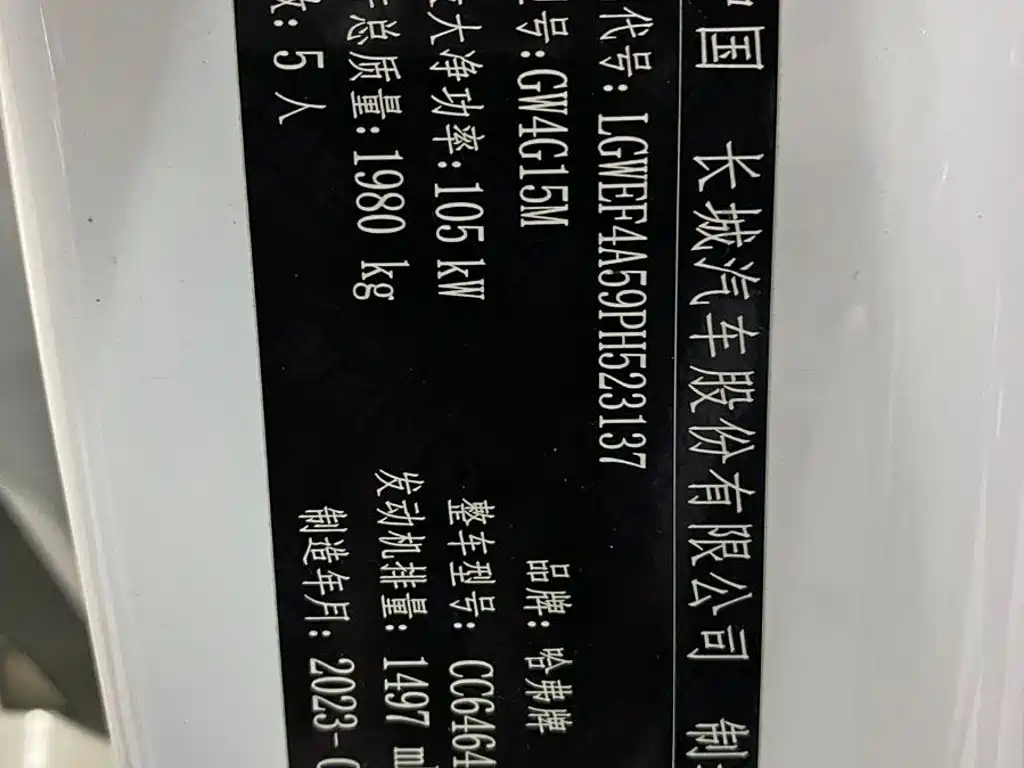 中国 长城汽车股份有限公司 制
代号: LGWEF4A59PH523137
号: GW4G15M
品牌: 哈弗牌
大净功率: 105 kW
整车型号: CC6464
总质量: 1980 kg
发动机排量: 1497 ml
数: 5 人
制造年月: 2023-0